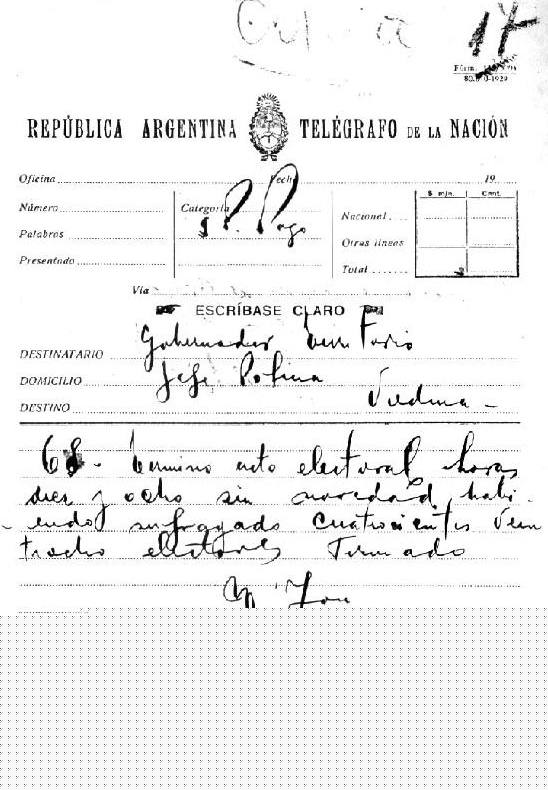 Oficina
17
Fórm.
REPÚBLICA ARGENTINA TELÉGRAFO DE LA NACIÓN
Oficina Fecha 19
Número Categoría
Palabras
Presentado
$ m/n. Cent.
Nacional
Otras líneas
Total
Vía
ESCRÍBASE CLARO
DESTINATARIO Gobernador Territorio
DOMICILIO Jefe Policia
DESTINO Viedma -
68 - termino acto electoral horas
diez y ocho sin novedad habi
endo sufragado cuatrocientos vein
tiocho electores Firmado